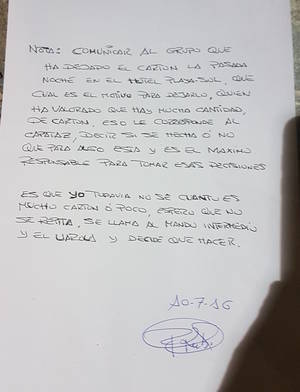 NOTA: COMUNICAR AL GRUPO QUE
HA DEJADO EL CARTON LA PASADA
NOCHE EN EL HOTEL PLAYA-SUL, QUE
CUAL ES EL MOTIVO PARA DEJARLO, QUIEN
HA VALORADO QUE HAY MUCHA CANTIDAD,
DE CARTON, ESO LE CORRESPONDE AL
CAPATAZ, DECIR SI SE HECHA Ó NO
QUE PARA ALGO ESTA Y ES EL MAXIMO
RESPONSABLE PARA TOMAR ESAS DECISIONES
ES QUE YO TODAVIA NO SE CUANTO ES
MUCHO CARTON Ó POCO, ESPERO QUE NO
SE REPITA, SE LLAMA AL MANDO INTERMEDIO
Y EL DECIDE QUE HACER.
10-7-16